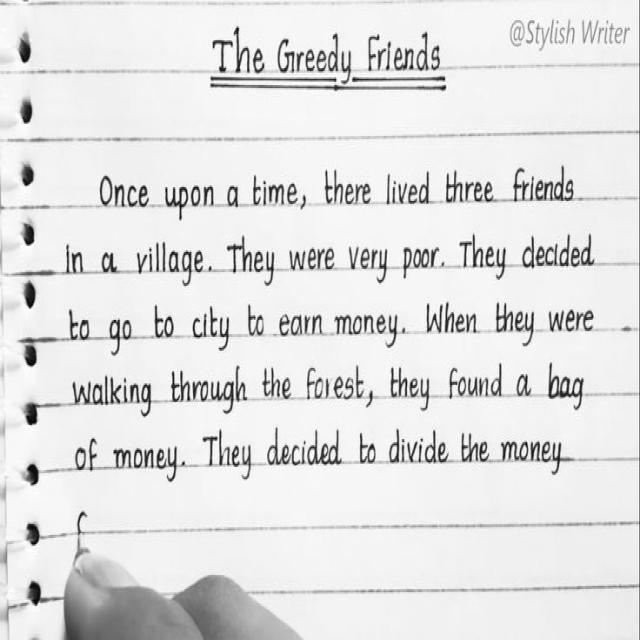 @Stylish Writer
The Greedy Friends
Once upon a time, there lived three friends
in a village. They were very poor. They decided
to go to city to earn money. When they were
walking through the forest, they found a bag
of money. They decided to divide the money